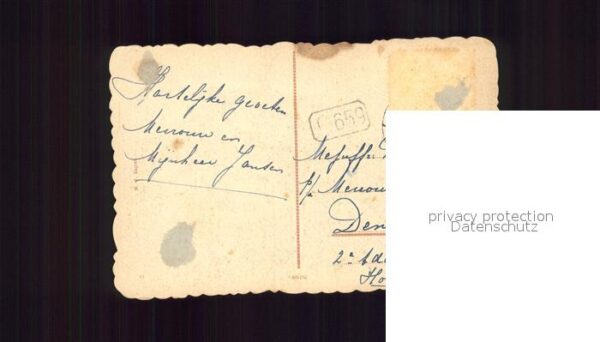 Hartelijke groeten
Mevrouw en
Mijnheer Jansen
659
Mejuffr
p/a Mevrou
Den
2e
Ho
privacy protection
Datenschutz